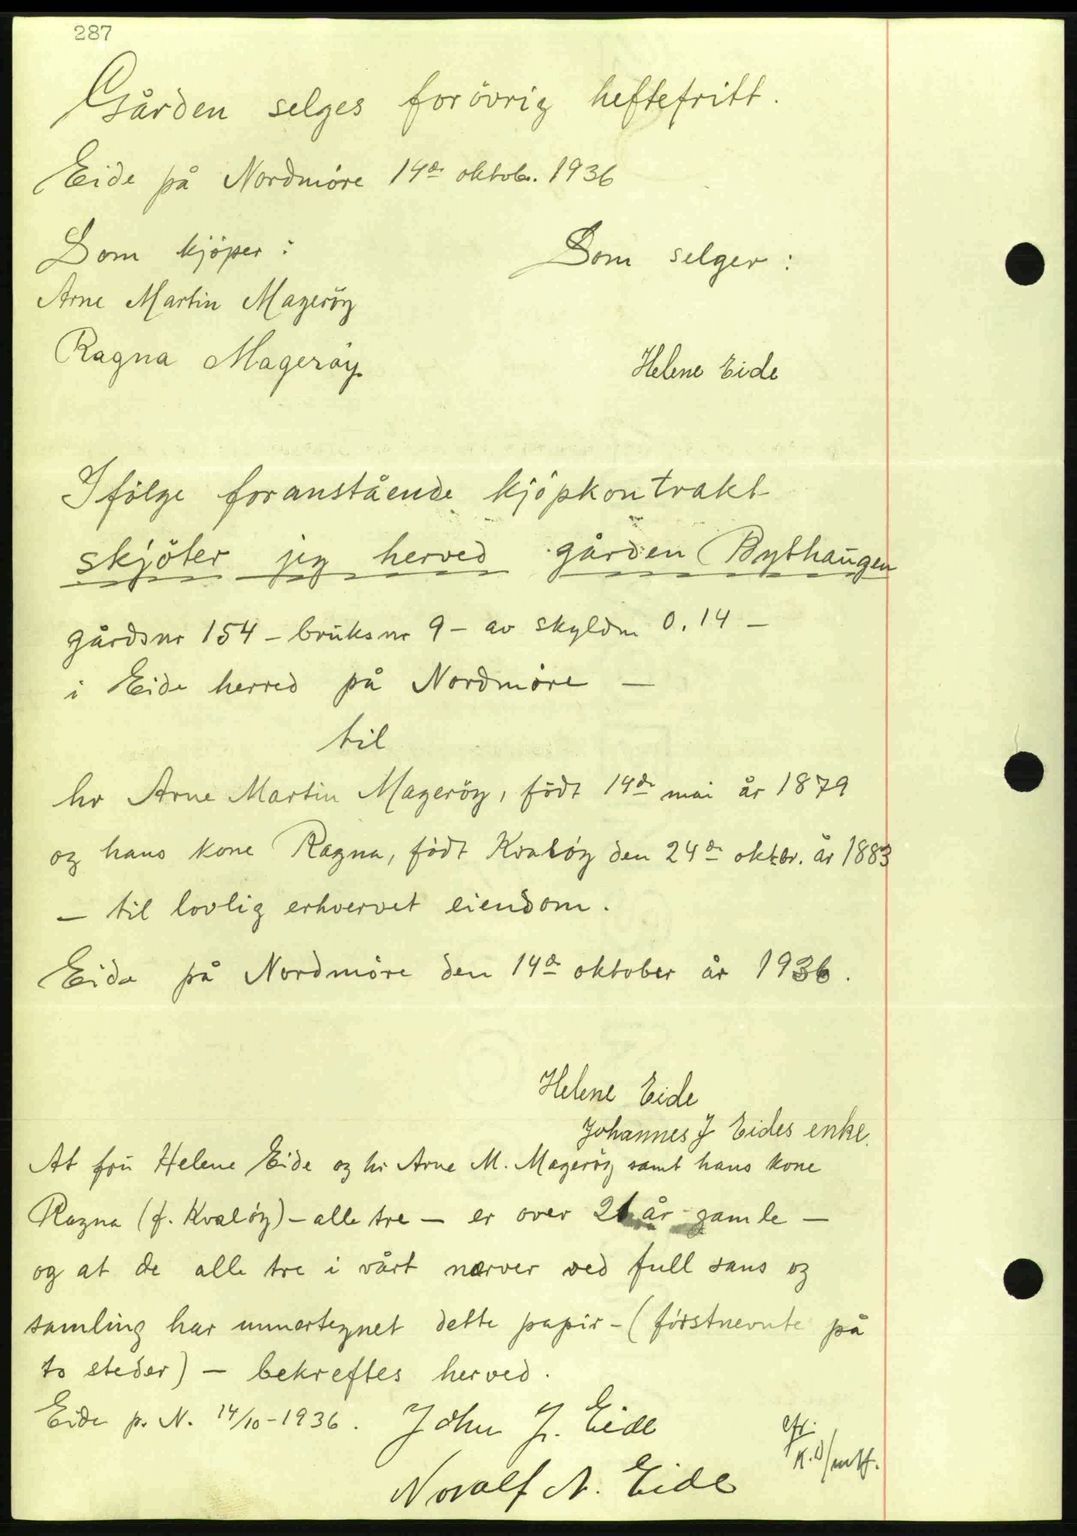 287
Gården selges forövrig heftefritt.
Eide på Nordmöre 14de oktob. 1936
Som kjöper :
Som selger :
Arne Martin Mageröy
Ragna Mageröy
Helene Eide
Ifölge foranstående kjöpkontrakt
skjöter jeg herved gården Bythaugen
gårdsnr 154 - bruksnr 9 - av skyldm 0.14 -
i Eide herred på Nordmöre -
til
hr Arne Martin Mageröy, födt 14de mai år 1879
og hans kone Ragna, födt Kvalöy den 24de oktbr. år 1883
- til lovlig erhvervet eiendom.
Eide på Nordmöre den 14de oktober år 1936.
Helene Eide
Johannes J Eides enke.
At fru Helene Eide og hr Arne M. Mageröy samt hans kone
Ragna (f. Kvalöy) - alle tre - er over 21 år gamle -
og at de alle tre i vårt nærver ved full sans og
samling har unnertegnet dette papir - (förstnevnte på
to steder) - bekreftes herved.
Eide p. N. 14/10 - 1936.
John J. Eide
Noralf A. Eide